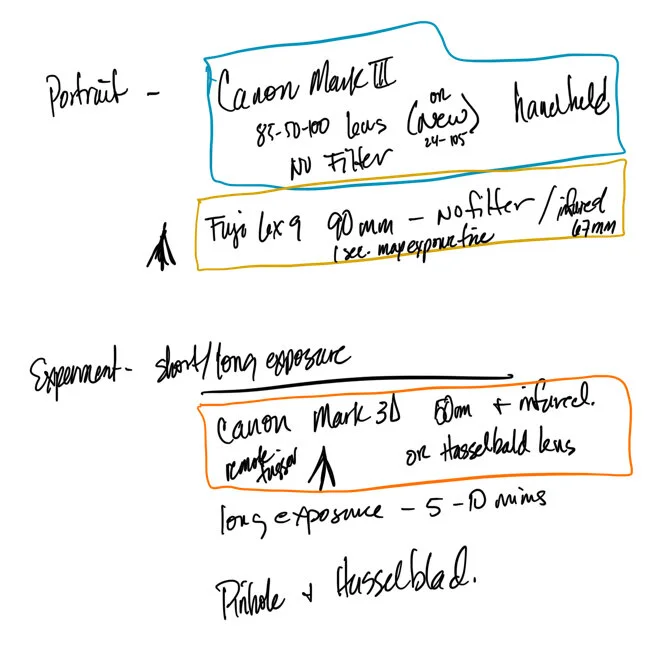 Portrait -
Canon Mark III
85-50-100 lens (or New) 24-105
handheld
NO Filter
Fuji 6x9 90mm - No filter / infured 67mm
1 sec. max exposure time
Experiment - short/long exposure
Canon Mark 3D 50m + infured.
remote trigger
or Hasselbald lens
long exposure - 5 - 10 mins
Pinhole + Hasselblad.